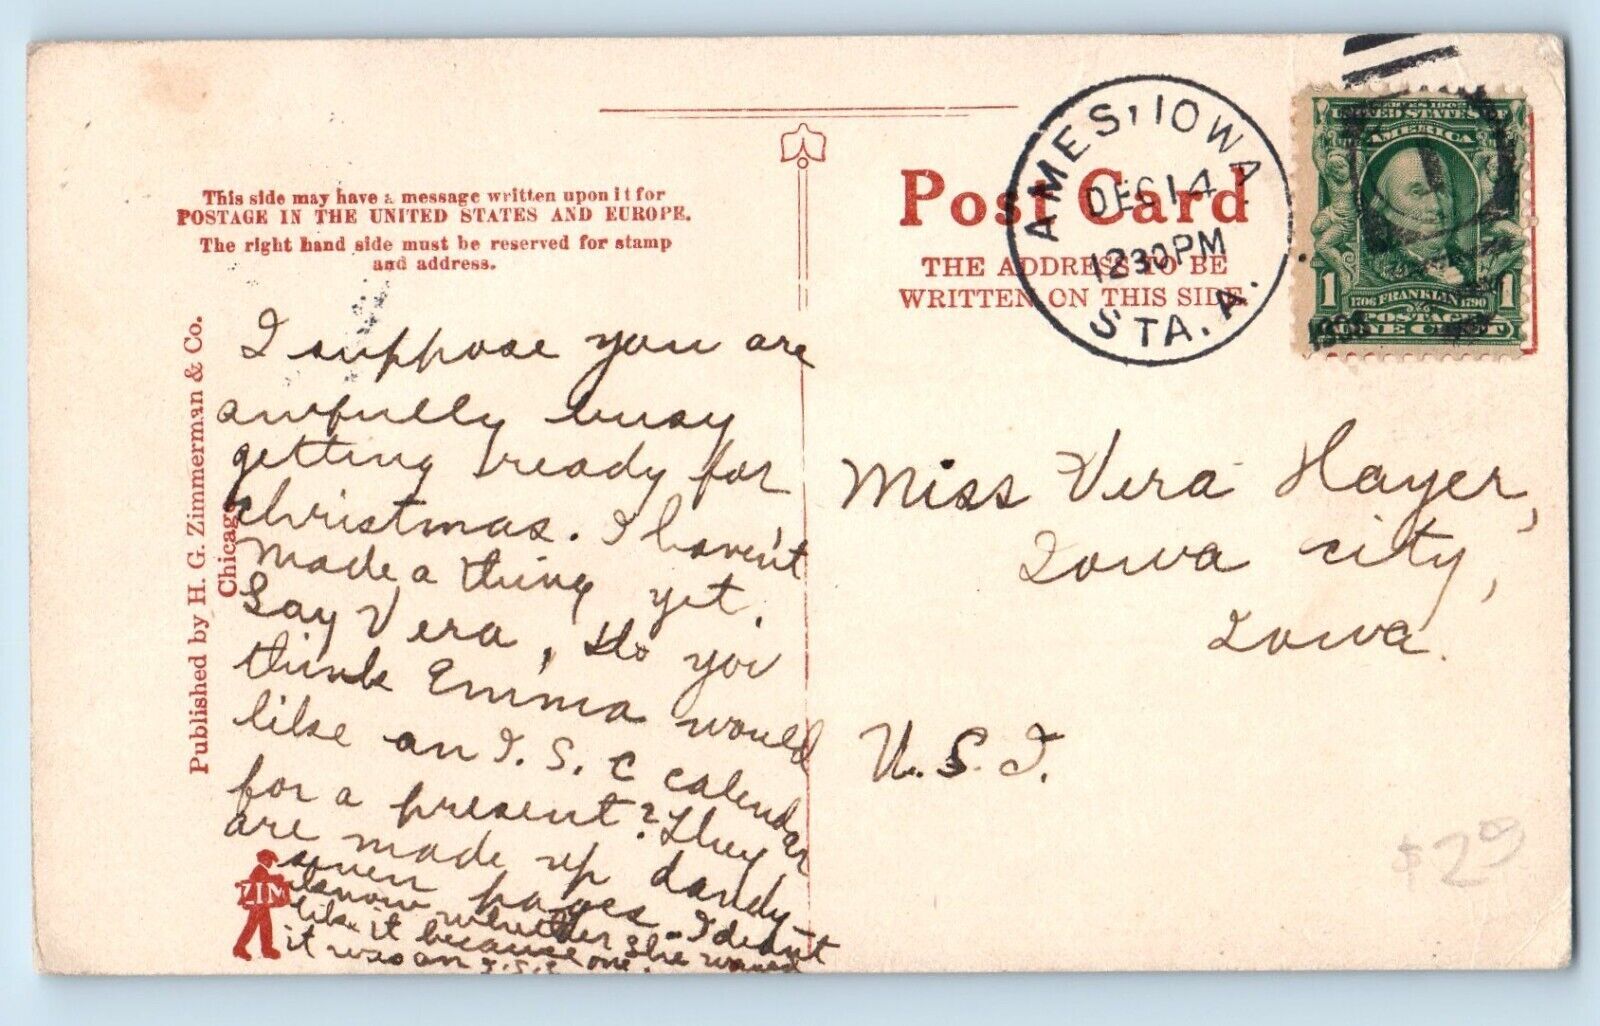 This side may have a message written upon it for
POSTAGE IN THE UNITED STATES AND EUROPE.
The right hand side must be reserved for stamp
and address.
Published by H. G. Zimmerman & Co.
Chicago
I suppose you are
awfully busy
getting ready for
christmas. I haven't
made a thing yet.
Say Vera, do you
think Emma would
like an I. S. C calendar
for a present? They
are made up dandy -
seven pages. I didn't
know whether she would
like it because
it was an I.S.C one.
ZIM
Post Card
THE ADDRESS TO BE
WRITTEN ON THIS SIDE.
AMES, IOWA
DEC 14
1230PM
STA. A.
SERIES 1902
UNITED STATES OF
AMERICA
1 1706 FRANKLIN 1790 1
POSTAGE
ONE CENT
Miss Vera Hayer,
Iowa city,
Iowa.
U.S.I.
$2 09